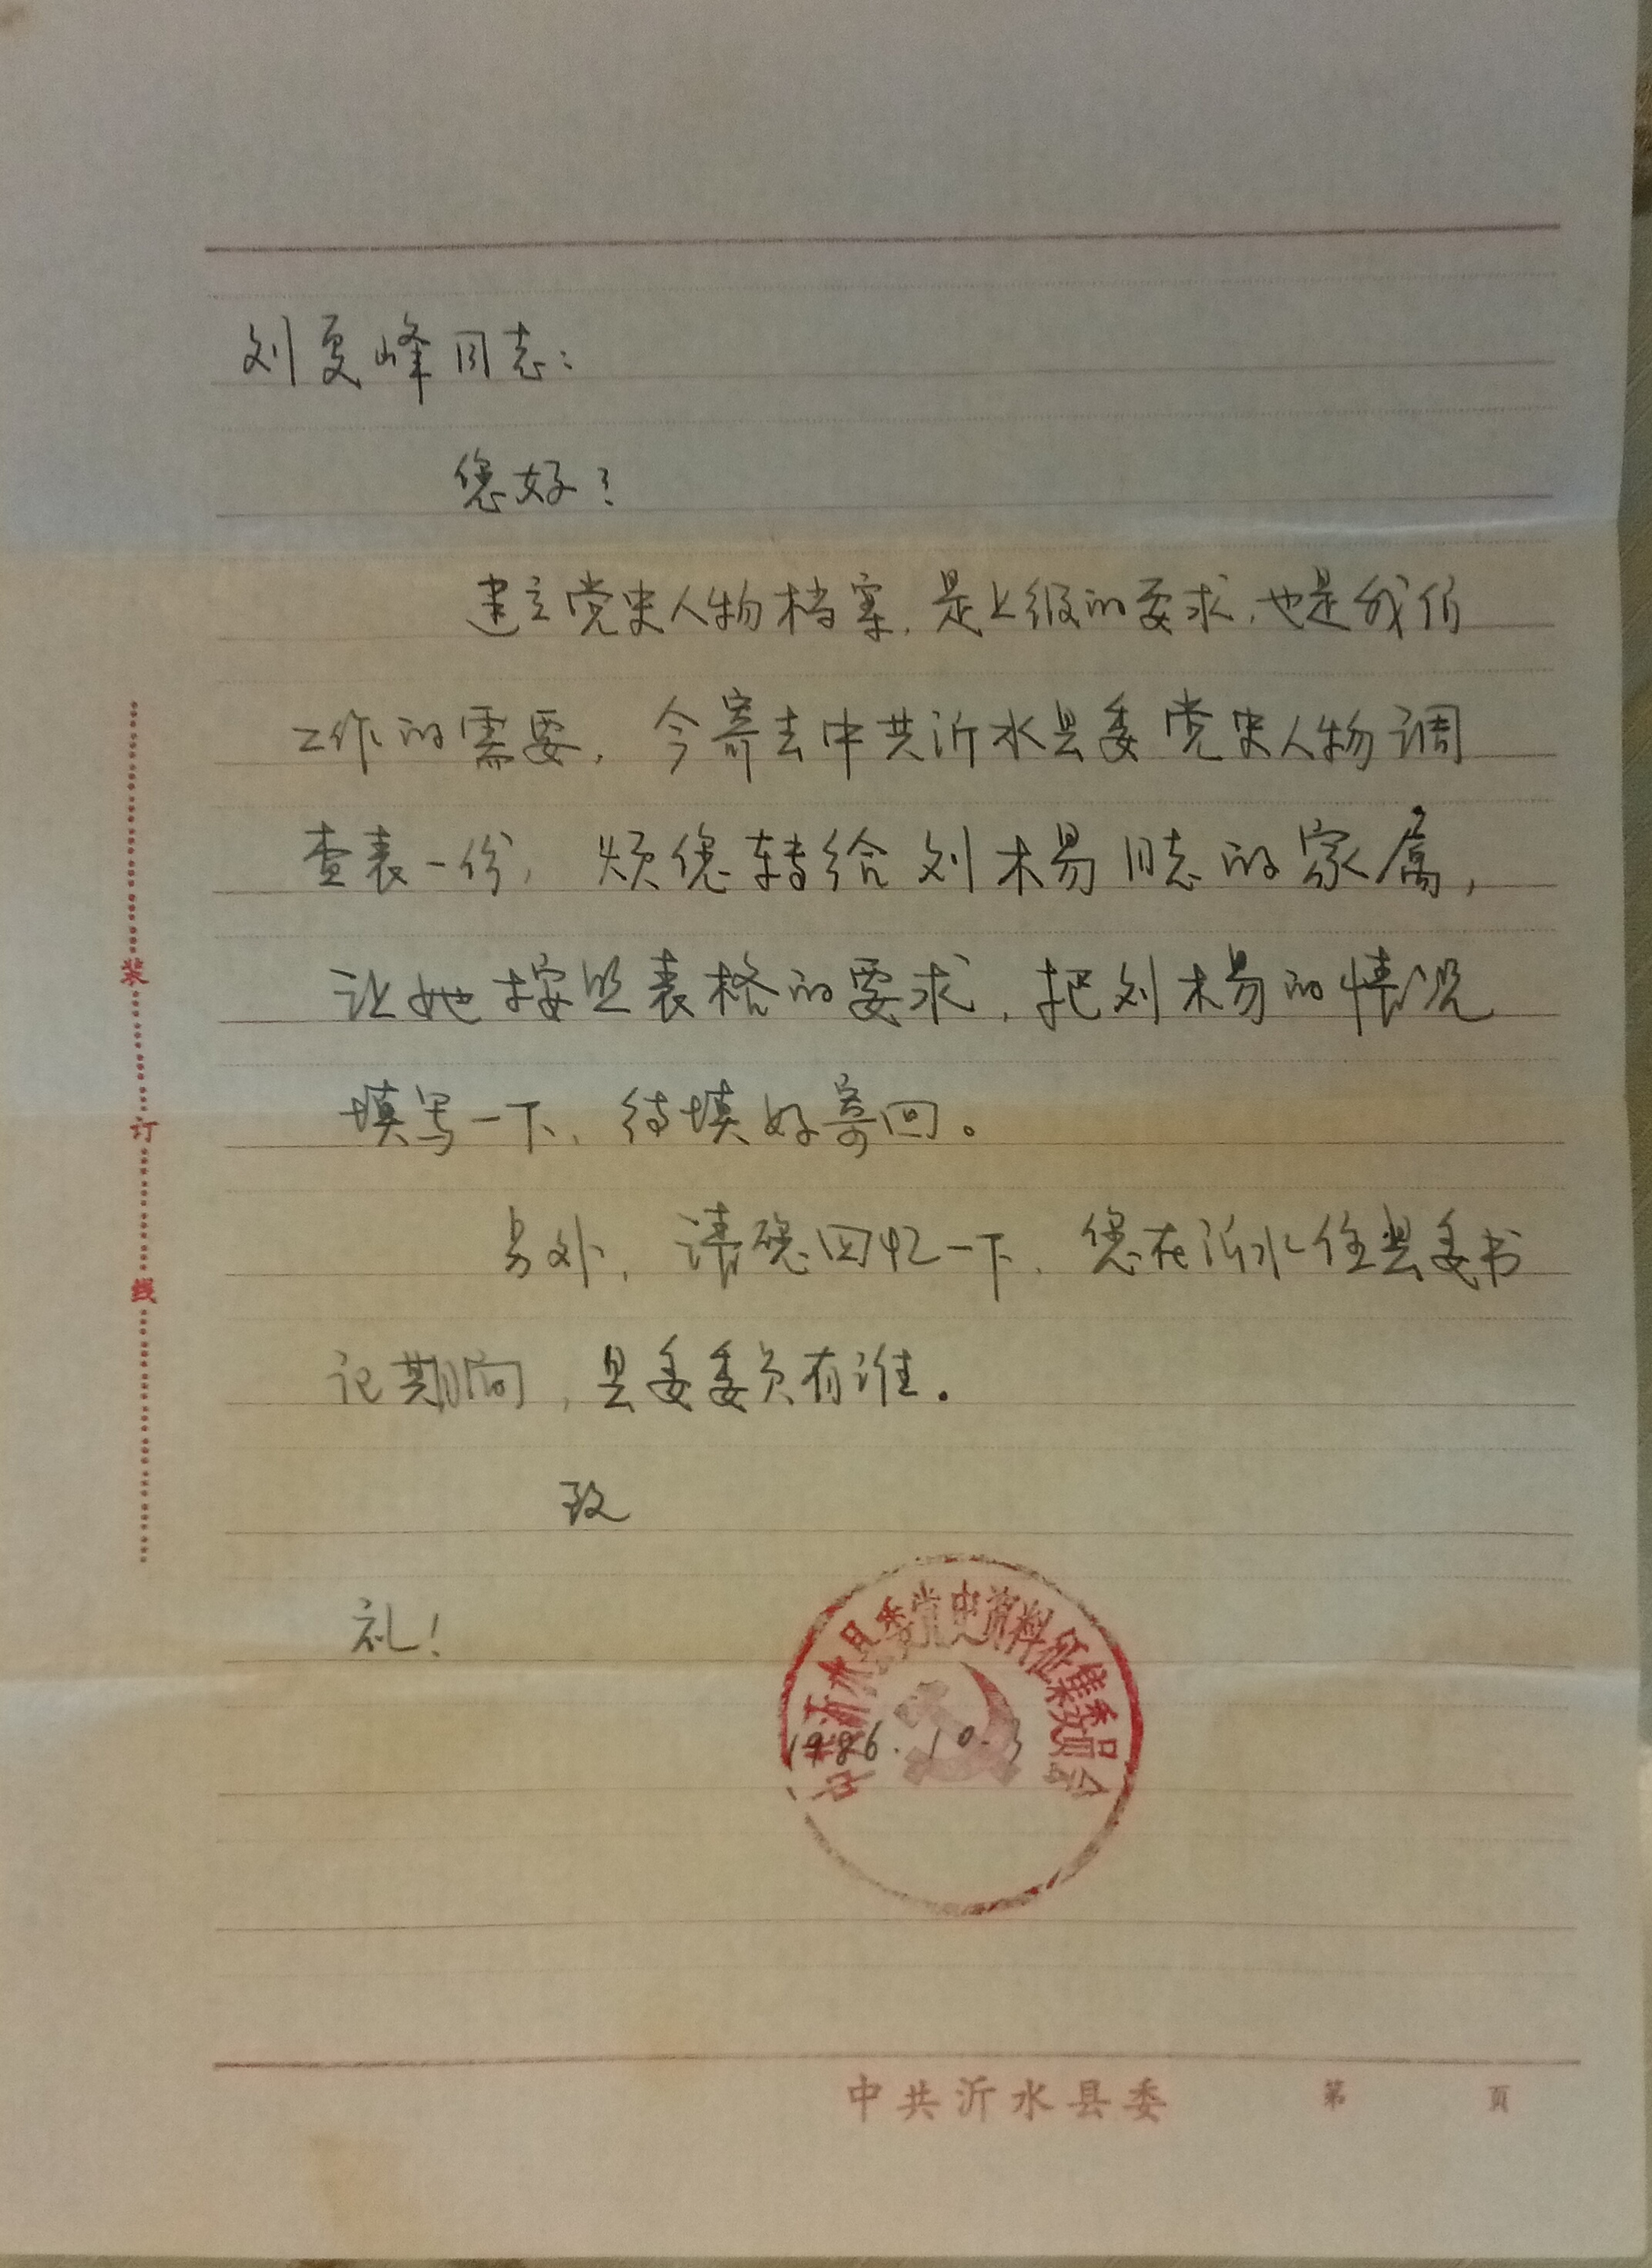 刘夏峰同志：
您好！
建立党史人物档案，是上级的要求，也是我们
工作的需要，今寄去中共沂水县委党史人物调
查表一份，烦您转给刘木易同志的家属，
让她按照表格的要求，把刘木易的情况
填写一下，待填好寄回。
另外，请您回忆一下，您在沂水任县委书
记期间，县委委员有谁.
致
礼！
中共沂水县委党史资料征集委员会
1986.10.3
装
订
线
中共沂水县委 第 页